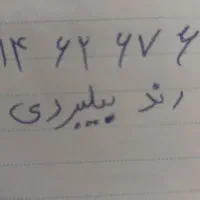 ۱۴ ۶۲ ۶۷ ۶
رند بیلبردی